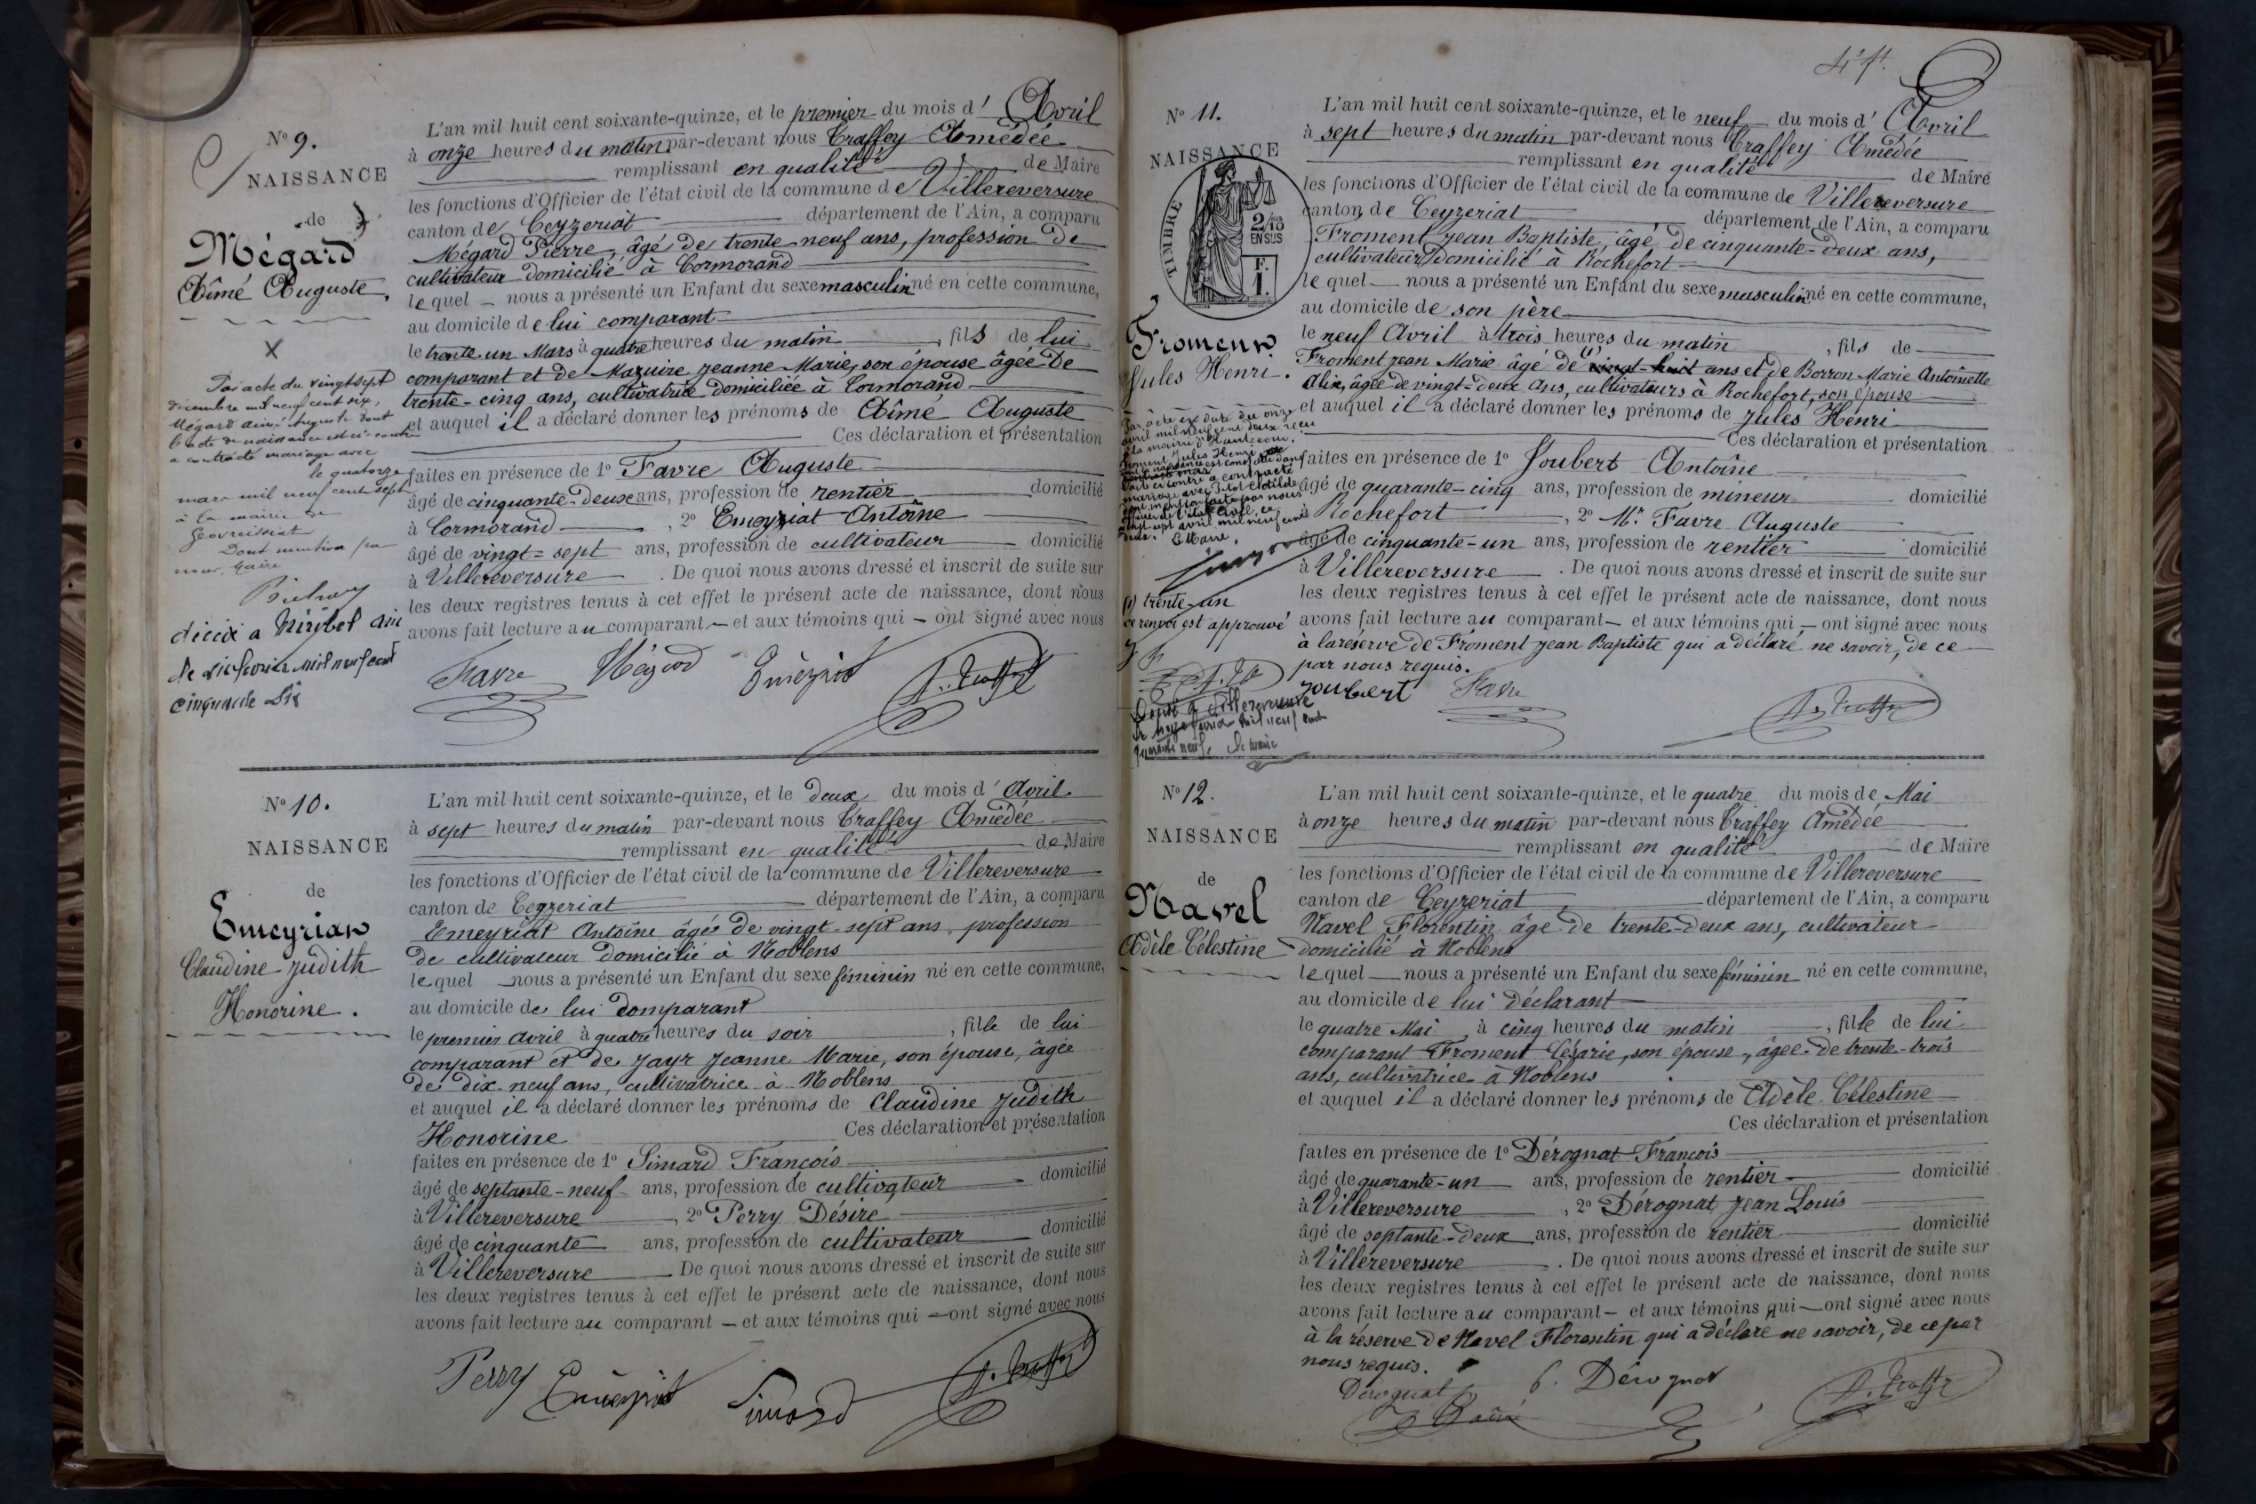 N° 9.
NAISSANCE
de
Mégard
Aîmé Auguste.
Par acte du vingt sept
décembre mil neuf cent six,
Mégard Aimé Auguste dont
l'acte de naissance est ci-contre
a contracté mariage avec
le quatorze
mars mil neuf cent sept
à la mairie de
Dont mention par
nous, Maire
décédé a Miribel Ain
le six février mil neuf cent
cinquante six
L'an mil huit cent soixante-quinze, et le premier du mois d' Avril
à onze heures du matin par-devant nous Traffey Amédée
remplissant en qualité de Maire
les fonctions d'Officier de l'état civil de la commune de Villereversure
canton de Ceyzeriat département de l'Ain, a comparu
Mégard Pierre, âgé de trente-neuf ans, profession de
cultivateur domicilié à Cormorand
le quel nous a présenté un Enfant du sexe masculin né en cette commune,
au domicile de lui comparant
le trente un Mars à quatre heures du matin, fils de lui
comparant et de Mazuire Jeanne Marie, son épouse âgée de
trente-cinq ans, cultivatrice domiciliée à Cormorand
et auquel il a déclaré donner les prénoms de Aîmé Auguste
Ces déclaration et présentation
faites en présence de 1° Favre Auguste
âgé de cinquante-deux ans, profession de rentier domicilié
à Cormorand, 2° Emeyriat Antoîne
âgé de vingt-sept ans, profession de cultivateur domicilié
à Villereversure. De quoi nous avons dressé et inscrit de suite sur
les deux registres tenus à cet effet le présent acte de naissance, dont nous
avons fait lecture au comparant et aux témoins qui ont signé avec nous
Favre Mégard Emeyriat A. Traffey
N° 10.
NAISSANCE
de
Emeyriat
Claudine Judith
Honorine.
L'an mil huit cent soixante-quinze, et le deux du mois d' Avril
à sept heures du matin par-devant nous Traffey Amédée
remplissant en qualité de Maire
les fonctions d'Officier de l'état civil de la commune de Villereversure
canton de Ceyzeriat département de l'Ain, a comparu
Emeyriat Antoîne âgé de vingt-sept ans profession
de cultivateur domicilié à Noblens
le quel nous a présenté un Enfant du sexe féminin né en cette commune,
au domicile de lui comparant
le premier avril à quatre heures du soir, fille de lui
comparant et de Jayr Jeanne Marie, son épouse, âgée
de dix-neuf ans, cultivatrice à Noblens
et auquel il a déclaré donner les prénoms de Claudine Judith
Honorine Ces déclaration et présentation
faites en présence de 1° Simard François
âgé de septante-neuf ans, profession de cultivateur domicilié
à Villereversure, 2° Perry Désire
âgé de cinquante ans, profession de cultivateur domicilié
à Villereversure De quoi nous avons dressé et inscrit de suite sur
les deux registres tenus à cet effet le présent acte de naissance, dont nous
avons fait lecture au comparant et aux témoins qui ont signé avec nous
Perry Emeyriat Simard A. Traffey
4e ft.
N° 11.
NAISSANCE
TIMBRE
2/10
EN SUS
F.
1.
Froment
Jules Henri.
Par acte en date du onze
avril mil neuf cent deux reçu
Froment Jules Henri
ci contre a contracté
mariage avec Clotilde
dont mention faite par nous
officier de l'état civil, ce
avril mil neuf cent
deux. Le Maire,
(1) trente-un
ce renvoi est approuvé
Décédé à Villereversure
février mil neuf cent
quarante neuf. Le maire
L'an mil huit cent soixante-quinze, et le neuf du mois d' Avril
à sept heures du matin par-devant nous Traffey Amédée
remplissant en qualité de Maire
les fonctions d'Officier de l'état civil de la commune de Villereversure
canton de Ceyzeriat département de l'Ain, a comparu
Froment Jean Baptiste, âgé de cinquante-deux ans,
cultivateur domicilié à Rochefort
le quel nous a présenté un Enfant du sexe masculin né en cette commune,
au domicile de son père
le neuf Avril à trois heures du matin, fils de
Froment Jean Marie âgé de (1) vingt-huit ans et de Borron Marie Antoinette
Alix, âgée de vingt-deux ans, cultivateurs à Rochefort, son épouse
et auquel il a déclaré donner les prénoms de Jules Henri
Ces déclaration et présentation
faites en présence de 1° Joubert Antoîne
âgé de quarante-cinq ans, profession de mineur domicilié
à Rochefort, 2° Mr Favre Auguste
âgé de cinquante-un ans, profession de rentier domicilié
à Villereversure. De quoi nous avons dressé et inscrit de suite sur
les deux registres tenus à cet effet le présent acte de naissance, dont nous
avons fait lecture au comparant et aux témoins qui ont signé avec nous
à la réserve de Froment Jean Baptiste qui a déclaré ne savoir, de ce
par nous requis.
Joubert Favre A. Traffey
N° 12.
NAISSANCE
de
Navel
Adèle Célestine
L'an mil huit cent soixante-quinze, et le quatre du mois de Mai
à onze heures du matin par-devant nous Traffey Amédée
remplissant en qualité de Maire
les fonctions d'Officier de l'état civil de la commune de Villereversure
canton de Ceyzeriat département de l'Ain, a comparu
Navel Florentin âgé de trente-deux ans, cultivateur
domicilié à Noblens
le quel nous a présenté un Enfant du sexe féminin né en cette commune,
au domicile de lui déclarant
le quatre Mai à cinq heures du matin, fille de lui
comparant Froment Césarie, son épouse, âgée de trente-trois
ans, cultivatrice à Noblens
et auquel il a déclaré donner les prénoms de Adèle Célestine
Ces déclaration et présentation
faites en présence de 1° Dérognat François
âgé de quarante-un ans, profession de rentier domicilié
à Villereversure, 2° Dérognat Jean Louis
âgé de septante-deux ans, profession de rentier domicilié
à Villereversure. De quoi nous avons dressé et inscrit de suite sur
les deux registres tenus à cet effet le présent acte de naissance, dont nous
avons fait lecture au comparant et aux témoins qui ont signé avec nous
à la réserve de Navel Florentin qui a déclaré ne savoir, de ce par
nous requis.
Derognat f. Dérognat A. Traffey